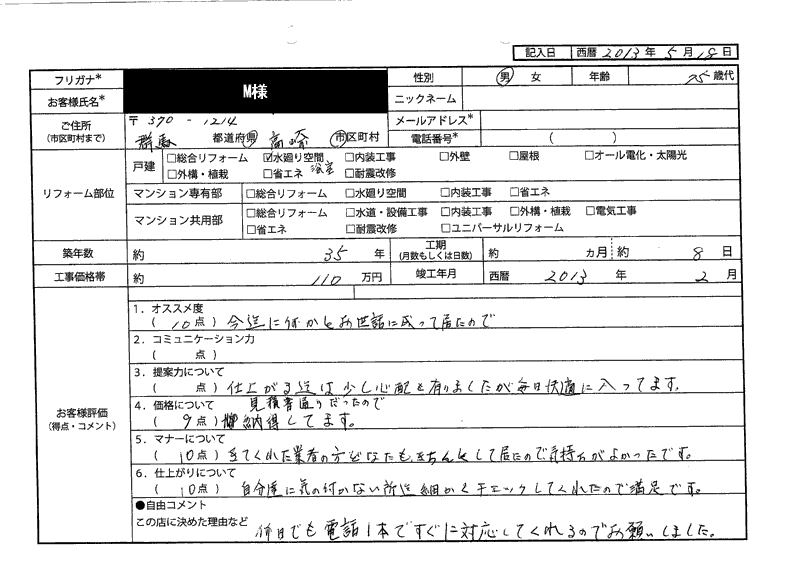 記入日 西暦 2013 年 5 月 18 日
フリガナ*
お客様氏名*
M様
性別 男 女 年齢 75 歳代
ニックネーム
ご住所
(市区町村まで)
〒 370 - 1214
群馬 都道府県 高崎 市区町村
メールアドレス*
電話番号* ( )
リフォーム部位
戸建 □総合リフォーム ☑水廻り空間 □内装工事 □外壁 □屋根 □オール電化・太陽光
□外構・植栽 □省エネ 浴室 □耐震改修
マンション専有部 □総合リフォーム □水廻り空間 □内装工事 □省エネ
マンション共用部 □総合リフォーム □水道・設備工事 □内装工事 □外構・植栽 □電気工事
□省エネ □耐震改修 □ユニバーサルリフォーム
築年数 約 35 年 工期 (月数もしくは日数) 約 カ月 約 8 日
工事価格帯 約 110 万円 竣工年月 西暦 2013 年 2 月
お客様評価
(得点・コメント)
1．オススメ度
( 10点 ) 今迄に何かとお世話に成って居たので
2．コミュニケーション力
( 点 )
3．提案力について
( 点 ) 仕上がる迄は少し心配も有りましたが毎日快適に入ってます。
4．価格について 見積書通りだったので
( 9点 ) 納得してます。
5．マナーについて
( 10点 ) きてくれた業者の方どなたも、きちんとして居たので気持ちがよかったです。
6．仕上がりについて
( 10点 ) 自分達に気の付かない所迄細かくチェックしてくれたので満足です。
●自由コメント
この店に決めた理由など 何日でも電話1本ですぐに対応してくれるのでお願いしました。